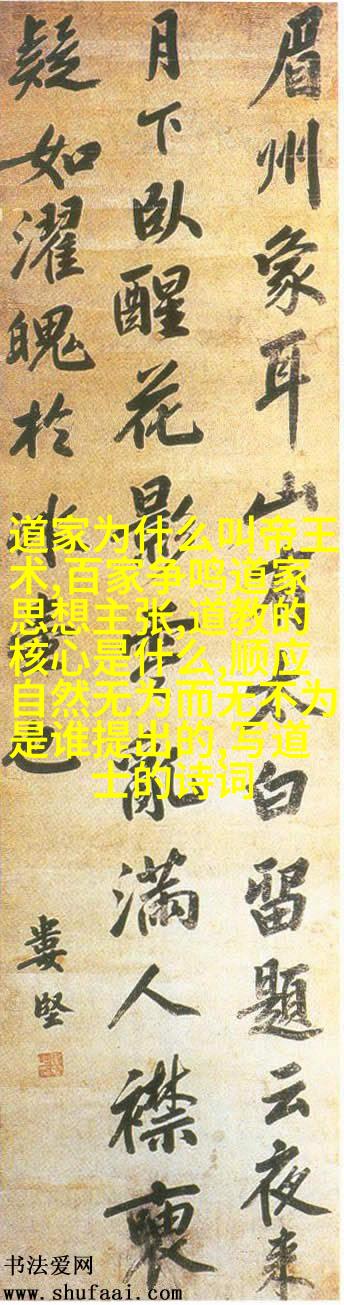 眉州象耳山白留題云夜来
月下臥醒花影亂滿人襟
疑如濯魄於冰也
婁堅
道家为什么叫帝王
术,百家争鸣道家
思想主张,道教的
核心是什么,顺应
自然无为而无不为
是谁提出的,写道
士的诗词
书法爱网
www.shufaai.com